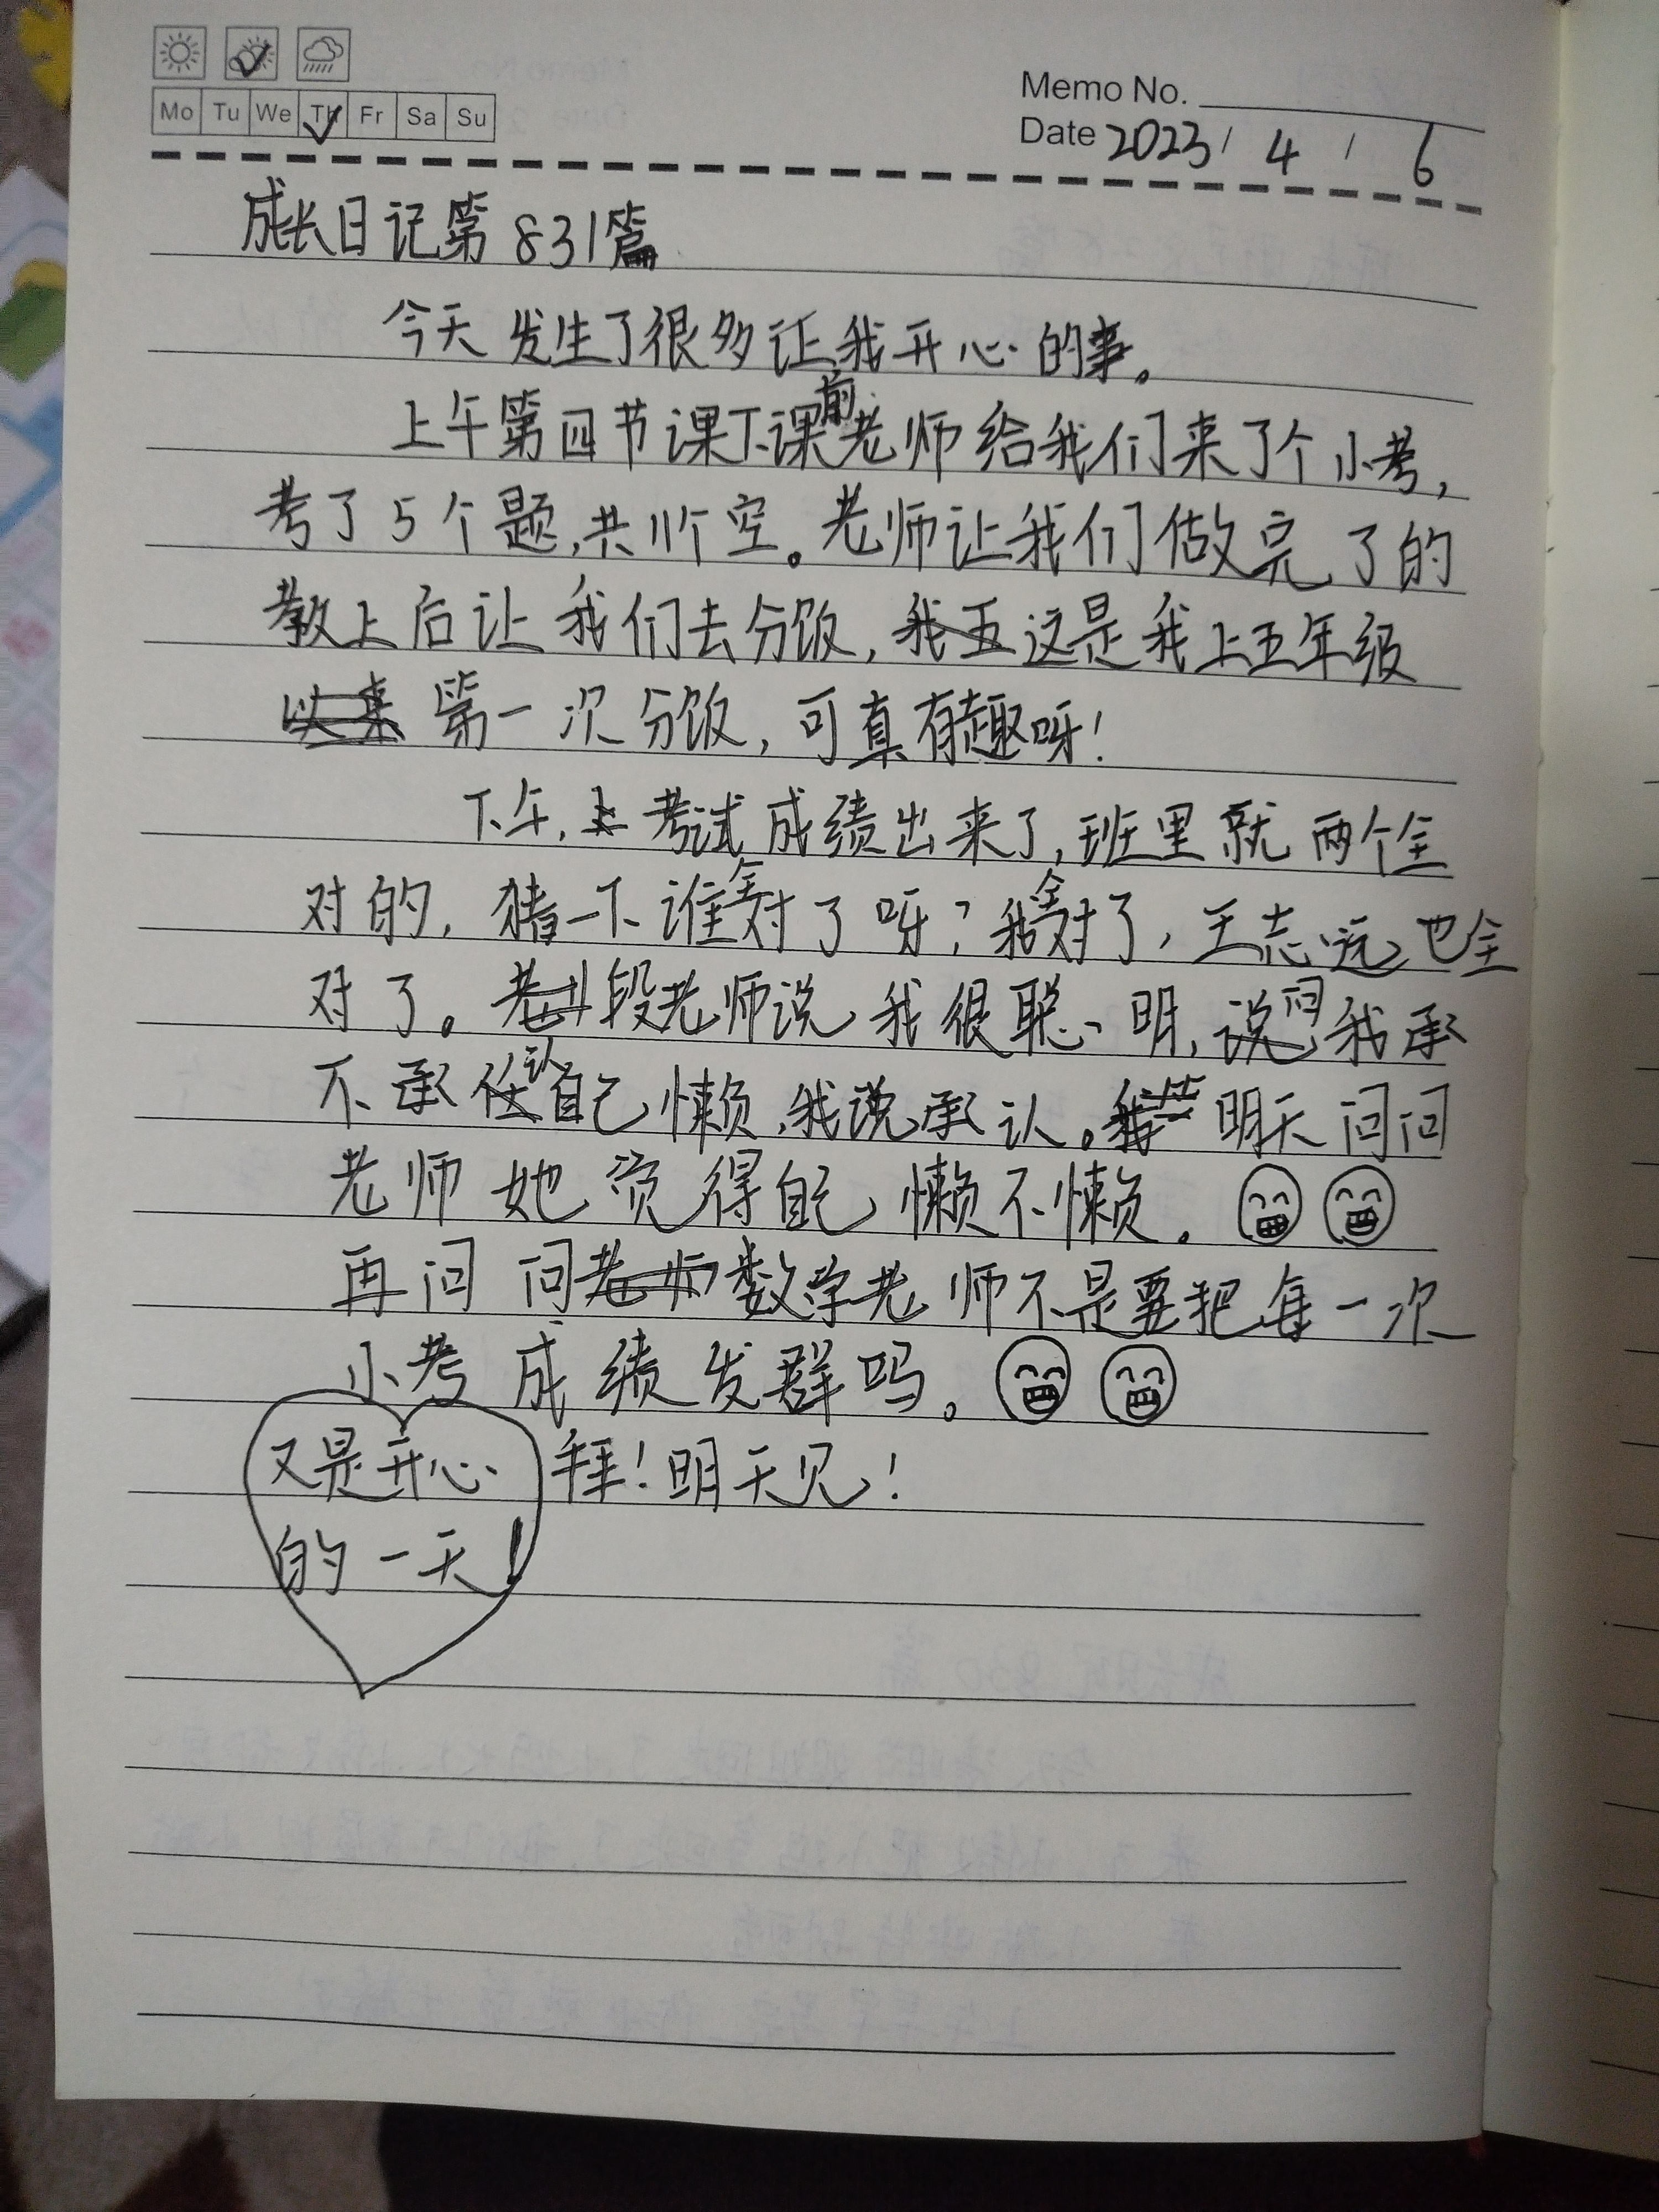 Mo Tu We Th Fr Sa Su
Memo No.
Date 2023 / 4 / 6
成长日记第831篇
今天发生了很多让我开心的事。
上午第四节课下课前老师给我们来了个小考,
考了5个题,共11个空。老师让我们做完了的
教上后让我们去分饭,这是我上五年级
第一次分饭,可真有趣呀!
下午,考试成绩出来了,班里就两个全
对的,猜一下谁全对了呀?我全对了,王志远也全
对了。段老师说我很聪明,说问我承
不承认自己懒,我说承认。明天问问
老师她觉得自己懒不懒。
再问问数学老师不是要把每一次
小考成绩发群吗。
又是开心
的一天!
拜!明天见!